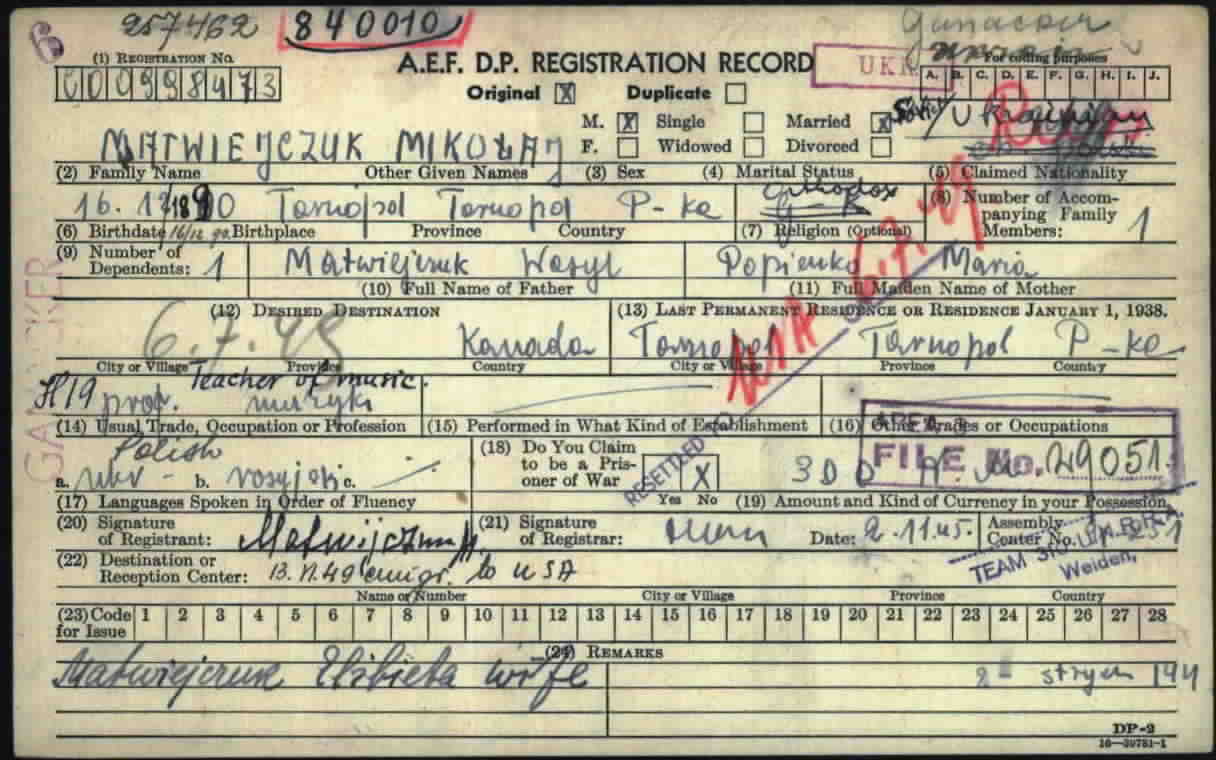 257462 840010
(1) REGISTRATION No.
00998473
A.E.F. D.P. REGISTRATION RECORD
Original X Duplicate
UKR
For coding purposes
A. B. C. D. E. F. G. H. I. J.
M. X Single Married X
F. Widowed Divorced
MATWIEJCZUK MIKOŁAJ
Ukrainian
(2) Family Name Other Given Names (3) Sex (4) Marital Status (5) Claimed Nationality
16. 12 1890 Tarnopol Tarnopol P-ka
Orthodox
G-K
(8) Number of Accompanying Family Members: 1
(6) Birthdate 16/12.90. Birthplace Province Country (7) Religion (Optional)
(9) Number of Dependents: 1
Matwiejczuk Wasyl Popienko Maria
(10) Full Name of Father (11) Full Maiden Name of Mother
(12) DESIRED DESTINATION (13) LAST PERMANENT RESIDENCE OR RESIDENCE JANUARY 1, 1938.
6.7.48 Kanada Tarnopol Tarnopol P-ka
USA
City or Village Province Country City or Village Province Country
Teacher of music.
H19 prof. muzyki
(14) Usual Trade, Occupation or Profession (15) Performed in What Kind of Establishment (16) Other Trades or Occupations
RESETTLED TO
FILE No. 29051.
Polish
a. ukr - b. rosyjski c.
(18) Do You Claim to be a Prisoner of War
X
Yes No
(17) Languages Spoken in Order of Fluency (19) Amount and Kind of Currency in your Possession
(20) Signature of Registrant: (21) Signature of Registrar: Date: 2.11.45. Assembly Center No.
TEAM
Weiden,
(22) Destination or Reception Center: 13.VI.49 emigr. to USA
Name or Number City or Village Province Country
(23) Code for Issue 1 2 3 4 5 6 7 8 9 10 11 12 13 14 15 16 17 18 19 20 21 22 23 24 25 26 27 28
(24) REMARKS
Matwiejczuk Elżbieta wife
DP-2
16—39781-1